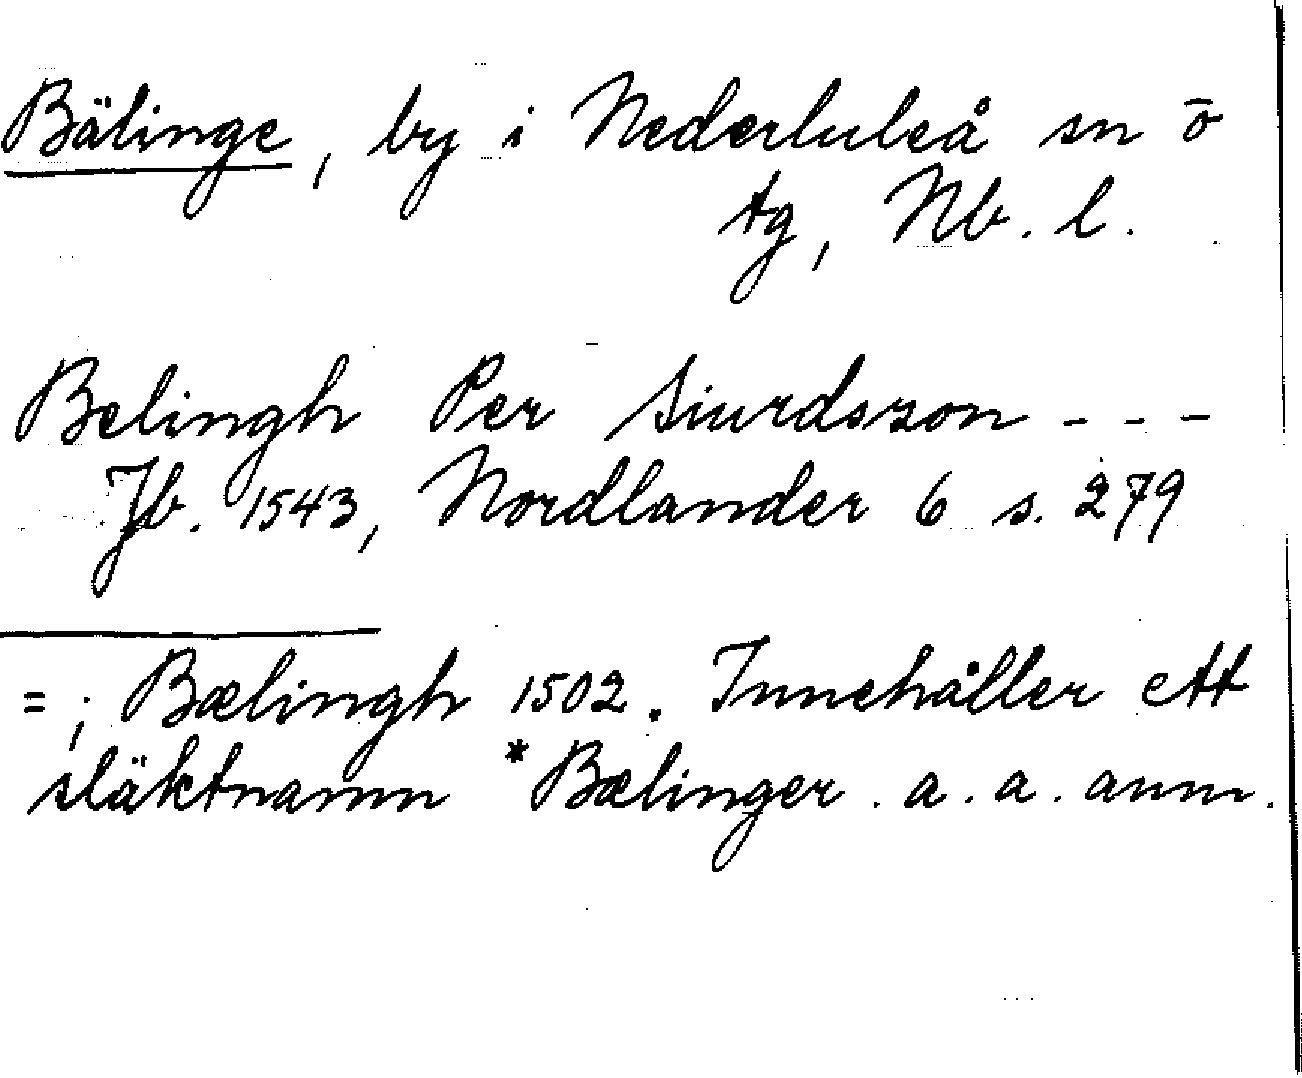 Bälinge, by i Nederluleå sn o
tg, Nb. l.
Belingh Per Siurdszon - - -
Jb. 1543, Nordlander 6 s. 279
= ; Bælingh 1502. Innehåller ett
släktnamn *Bælinger. a. a. anm.